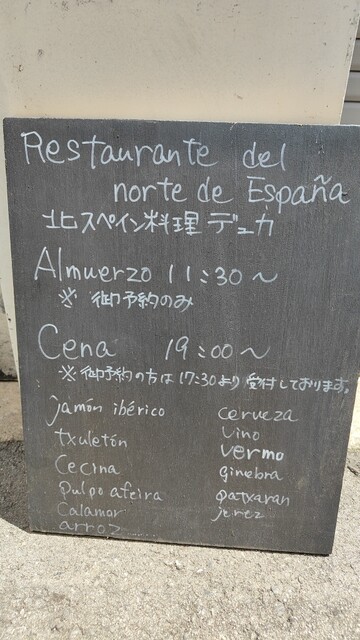 Restaurante del
norte de España
北スペイン料理 デュカ
Almuerzo 11:30~
※ 御予約のみ
Cena 19:00~
※御予約の方は17:30より受付しております。
jamón ibérico
txuletón
Cecina
pulpo afeira
Calamar
arroz......
cerveza
vino
vermo
ginebra
patxaran
jerez